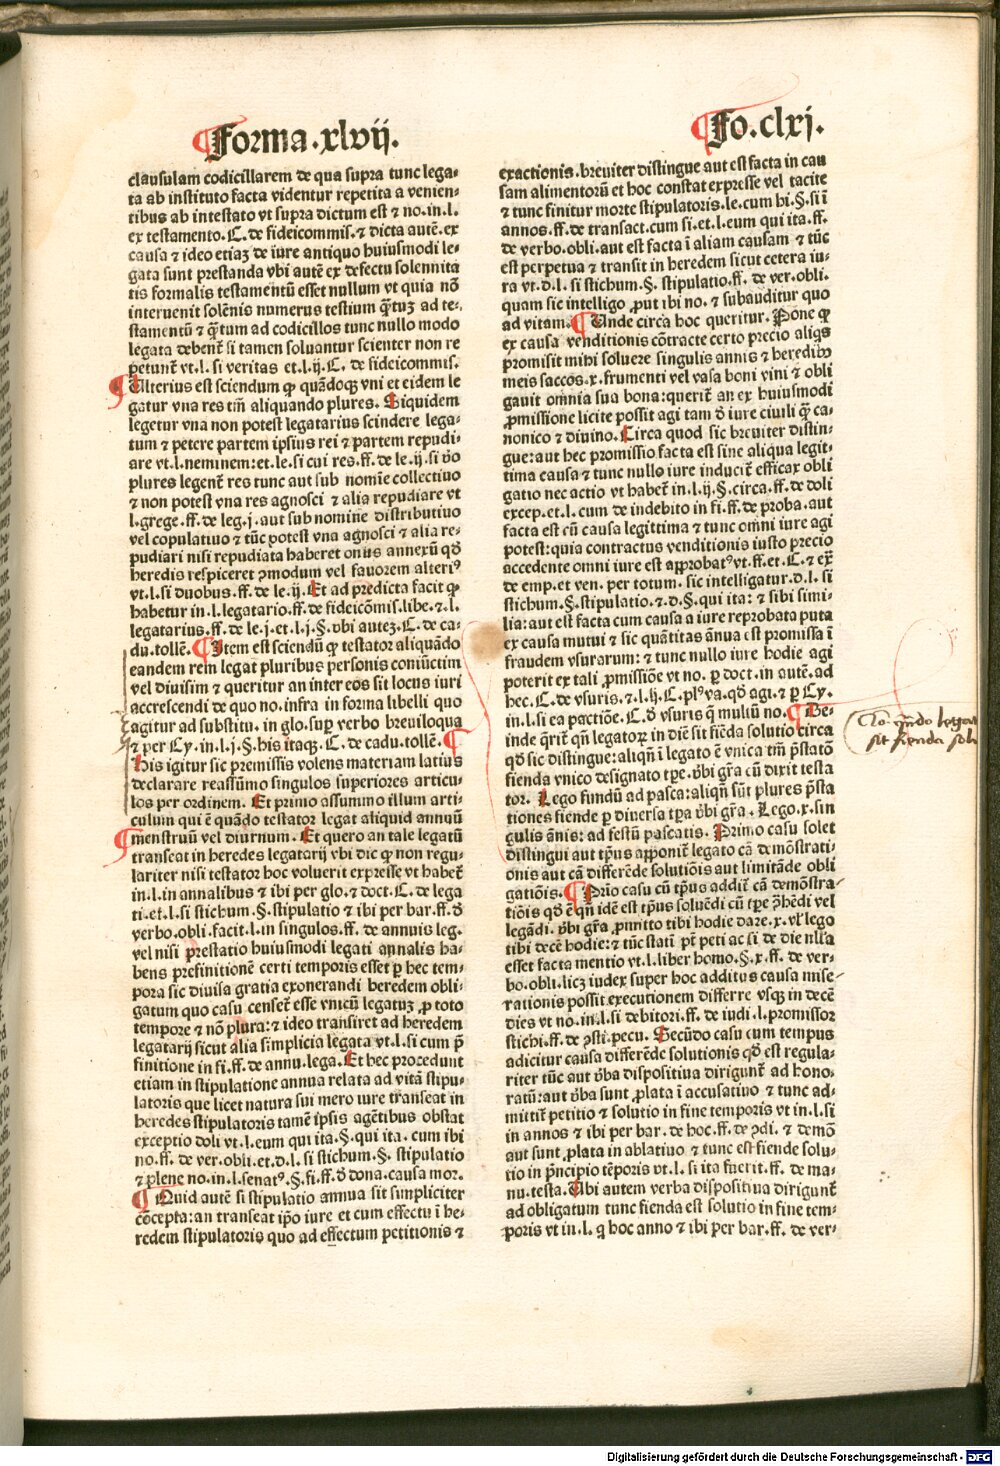 Forma.xlvij.
Fo.clxj.
clausulam codicillarem de qua supra tunc lega⸗
ta ab instituto facta videntur repetita a venien⸗
tibus ab intestato vt supra dictum est ⁊ no.in.l.
ex testamento.C.de fideicommis.⁊ dicta autē.ex
causa ⁊ ideo etiaʒ de iure antiquo huiusmodi le⸗
gata sunt prestanda vbi autē ex defectu solennita
tis formalis testamentū esset nullum vt quia nō
interuenit solēnis numerus testium q̄tuʒ ad te⸗
stamentū ⁊ q̄tum ad codicillos tunc nullo modo
legata debent̄ si tamen soluantur scienter non re
petunt̄ vt.l.si veritas et.l.ij.C. de fideicommis.
Ulterius est sciendum ꝙ quādoqʒ vni et eidem le
gatur vna res tm̄ aliquando plures. Siquidem
legetur vna non potest legatarius scindere lega⸗
tum ⁊ petere partem ipsius rei ⁊ partem repudi⸗
are vt.l.neminem:et.le.si cui res.ff.de le.ij.si v̄o
plures legent̄ res tunc aut sub nomīe collectiuo
⁊ non potest vna res agnosci ⁊ alia repudiare vt
l.grege.ff.de leg.j.aut sub nomine distributiuo
vel copulatiuo ⁊ tūc potest vna agnosci ⁊ alia re⸗
pudiari nisi repudiata haberet onus annexū qd̄
heredis respiceret ꝯmodum vel fauorem alteriꝰ
vt.l.si duobus.ff.de le.ij. Et ad predicta facit ꝙ
habetur in.l.legatario.ff.de fideicōmis.libe.⁊.l.
legatarius.ff.de le.j.et.l.j.§.vbi auteʒ.C.de ca⸗
du.tollē. Item est sciendū ꝙ testator aliquādo
eandem rem legat pluribus personis coniūctim
vel diuisim ⁊ queritur an inter eos sit locus iuri
accrescendi de quo no.infra in forma libelli quo
agitur ad substitu.in glo.suꝑ verbo breuiloqua
⁊ per Cy.in.l.j.§.his itaqʒ.C.de cadu.tollē.
His igitur sic premissis volens materiam latius
declarare reassūmo singulos superiores articu⸗
los per ordinem. Et primo assummo illum arti⸗
culum qui ē quādo testator legat aliquid annuū
menstruū vel diurnum. Et quero an tale legatū
transeat in heredes legatarij vbi dic ꝙ non regu⸗
lariter nisi testator hoc voluerit expresse vt habet̄
in.l.in annalibus ⁊ ibi per glo.⁊ doct.C.de lega
ti.et.l.si stichum.§.stipulatio ⁊ ibi per bar.ff.d̄
verbo.obli.facit.l.in singulos.ff.de annuis leg.
vel nisi prestatio huiusmodi legati annalis ha⸗
bens prefinitionē certi temporis esset ꝑ hec tem⸗
pora sic diuisa gratia exonerandi heredem obli⸗
gatum quo casu censet̄ esse vnicū legatuʒ ꝓ toto
tempore ⁊ nō plura:⁊ ideo transiret ad heredem
legatarij sicut alia simplicia legata vt.l.si cum p̄
finitione in fi.ff.de annu.lega. Et hec procedunt
etiam in stipulatione annua relata ad vitā stipu⸗
latoris que licet natura sui mero iure transeat in
heredes stipulatoris tamē ipsis agētibus obstat
exceptio doli vt.l.eum qui ita.§.qui ita.cum ibi
no.ff.de ver.obli.et.d.l.si stichum.§. stipulatio
⁊ plene no.in.l.senatꝰ.§.fi.ff.d̄ dona.causa mor.
Quid autē si stipulatio annua sit simpliciter
cōcepta:an transeat ip̄o iure et cum effectu ī he⸗
redem stipulatoris quo ad effectum petitionis ⁊
exactionis.breuiter distingue aut est facta in cau
sam alimentorū et hoc constat expresse vel tacite
⁊ tunc finitur morte stipulatoris.le.cum hi.§.si ī
annos.ff.de transact.cum si.et.l.eum qui ita.ff.
de verbo.obli.aut est facta ī aliam causam ⁊ tūc
est perpetua ⁊ transit in heredem sicut cetera iu⸗
ra vt.d.l.si stichum.§. stipulatio.ff. de ver.obli.
quam sic intelligo ꝓut ibi no.⁊ subauditur quo
ad vitam. Unde circa hoc queritur. Pone ꝙ
ex causa venditionis cōtracte certo precio aliqs
promisit mihi soluere singulis annis ⁊ heredibꝰ
meis saccos.x.frumenti vel vasa boni vini ⁊ obli
gauit omnia sua bona:querit̄ an ex huiusmodi
ꝓmissione licite possit agi tam d̄ iure ciuili q̄ ca⸗
nonico ⁊ diuino. Circa quod sic breuiter distin⸗
gue:aut hec promissio facta est sine aliqua legit⸗
tima causa ⁊ tunc nullo iure inducit̄ efficax obli
gatio nec actio vt habet̄ in.l.ij.§.circa.ff.de doli
excep.et.l.cum de indebito in fi.ff.de proba.aut
facta est cū causa legittima ⁊ tunc omni iure agi
potest:quia contractus venditionis iusto precio
accedente omni iure est approbatꝰ vt.ff.et.C.⁊ ex̄
de emp.et ven.per totum.sic intelligatur.d.l. si
stichum.§.stipulatio.⁊.d.§.qui ita:⁊ sibi simi⸗
lia:aut est facta cum causa a iure reprobata puta
ex causa mutui ⁊ sic quātitas ānua est promissa ī
fraudem vsurarum:⁊ tunc nullo iure hodie agi
poterit ex tali ꝓmissiōe vt no.ꝑ doct.in autē.ad
hec.C.de vsuris.⁊.l.ij.C.plꝰ va.qd̄ agi.⁊ ꝑ Cy.
in.l.si ea pactiōe.C.d̄ vsuris q̄ multū no. De⸗
inde q̄rit̄ qn̄ legatoꝝ in diē sit fiēda solutio circa
qd̄ sic distingue:aliqn̄ ī legato ē vnica tm̄ p̄statō
fienda vnico designato tꝑe.v̄bi gr̄a cū dixit testa
tor. Lego fundū ad pasca:aliqn̄ sūt plures p̄sta
tiones fiende ꝑ diuersa tꝑa v̄bi gr̄a. Lego.x.sin
gulis ānis:ad festū pascatis. Primo casu solet
distingui aut tp̄us apponit̄ legato cā demōstrati⸗
onis aut cā differēde solutiōis aut limitāde obli
gatiōis. Prīo casu cū tp̄us addit̄ cā demōstra⸗
tiōis qd̄ ē qn̄ idē est tp̄us soluēdi cū tꝑe p̄hēdi vel
legādi. v̄bi gr̄a ꝓmitto tibi hodie dare.x.vl̓ lego
tibi decē hodie:⁊ tūc statī pt̄ peti ac si de die nll̓a
esset facta mentio vt.l.liber homo.§.x.ff. de ver⸗
bo.obli.licʒ iudex super hoc additus causa mise⸗
rationis possit executionem differre vsqʒ in decē
dies vt no.in.l.si debitori.ff. de iudi.l.promissor
stichi.ff.de ꝯsti.pecu. Secūdo casu cum tempus
adicitur causa differēde solutionis qd̄ est regula⸗
riter tūc aut v̄ba dispositiua dirigunt̄ ad hono⸗
ratū:aut v̄ba sunt ꝓlata ī accusatiuo ⁊ tunc ad⸗
mittit̄ petitio ⁊ solutio in fine temporis vt in.l.si
in annos ⁊ ibi per bar.de hoc.ff.de ꝯdi.⁊ demō
aut sunt ꝓlata in ablatiuo ⁊ tunc est fiende solu⸗
tio in p̄ncipio tēporis vt.l. si ita fuerit.ff.de ma⸗
nu.testa. Ubi autem verba dispositiua dirigunt̄
ad obligatum tunc fienda est solutio in fine tem⸗
poris vt in.l. q̄ hoc anno ⁊ ibi per bar.ff. de ver⸗
sit fienda
Digitalisierung gefördert durch die Deutsche Forschungsgemeinschaft - DFG